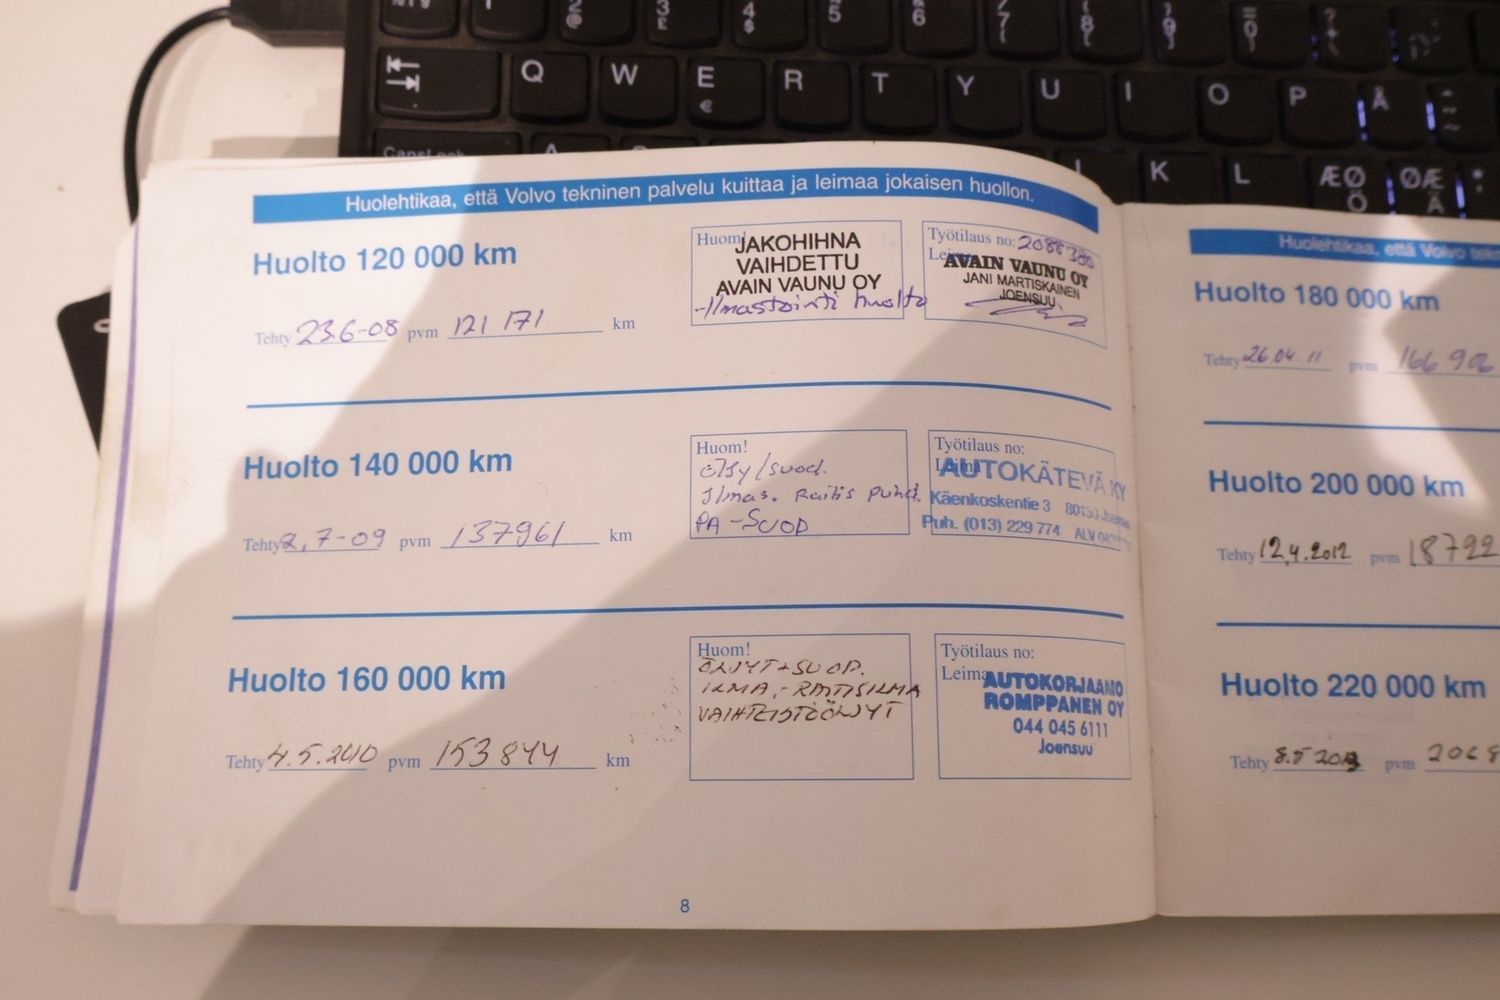 2 3 4 5 6 7 8 9 0
@ £ $
Q W E R T Y U I O P Å
€
CapsLock A
K L ÆØ ØÆ
Ö Ä
Huolehtikaa, että Volvo tekninen palvelu kuittaa ja leimaa jokaisen huollon.
Huolto 120 000 km
Tehty 23.6-08 pvm 121 171 km
Huom!
JAKOHIHNA
VAIHDETTU
AVAIN VAUNU OY
-Ilmastointi huolto
Työtilaus no: 2088380
Leima
AVAIN VAUNU OY
JANI MARTISKAINEN
JOENSUU
Huolto 140 000 km
Tehty 2,7-09 pvm 137961 km
Huom!
Öljy/suod.
Ilmas. Raitis puhd.
PA-SUOD
Työtilaus no:
Leima
AUTOKÄTEVÄ KY
Käenkoskentie 3 80130 Joensuu
Puh. (013) 229 774 ALV
Huolto 160 000 km
Tehty 4.5.2010 pvm 153844 km
Huom!
ÖLJYT+SUOD.
ILMA,- RAITISILMA
VAIHTEISTOÖLJYT
Työtilaus no:
Leima
AUTOKORJAAMO
ROMPPANEN OY
044 045 6111
Joensuu
8
Huolehtikaa, että Volvo
Huolto 180 000 km
Tehty 26.04 11 pvm 166 90
Huolto 200 000 km
Tehty 12.4.2012 pvm 18792
Huolto 220 000 km
Tehty pvm 206